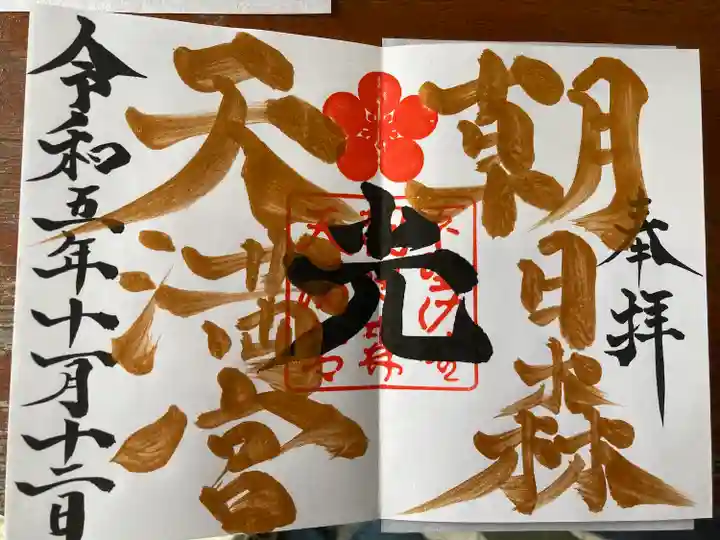 奉拝
朝日森
光
天満宮
令和五年十一月十二日